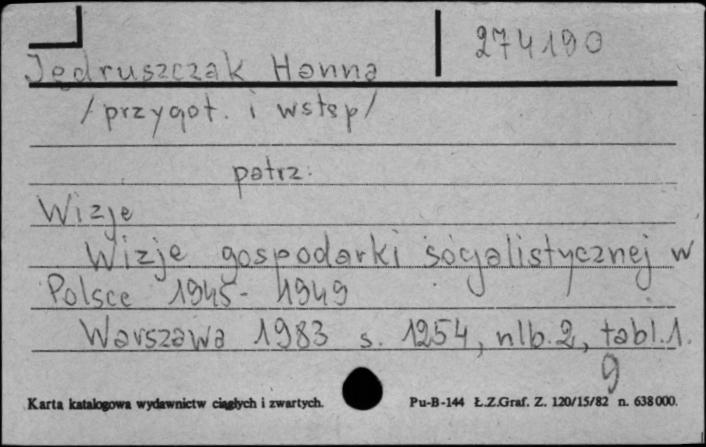 274190
Jędruszczak Hanna
/przygot. i wstęp/
patrz:
Wizje
Wizje gospodarki socjalistycznej w
Polsce 1945-1949
Warszawa 1983 s. 1254, nlb. 2, tabl. 1.
9
Karta katalogowa wydawnictw ciągłych i zwartych.
Pu-B-144 Ł.Z.Graf. Z. 120/15/82 n. 638000.